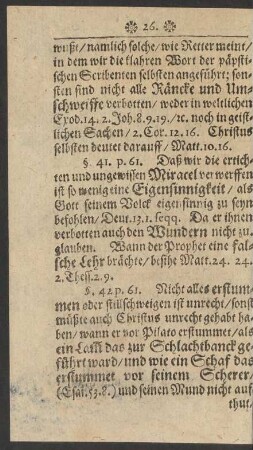 ❁ 26. ❁
wußt/ nämlich solche/ wie Retter meint/
in dem wir die klahren Wort der päpsti-
schen Scribenten selbsten angeführt; son-
sten sind nicht alle Räncke und Um-
schweiffe verbotten/ weder in weltlichen
Exod. 14. 2. Jos. 8. 9. 19./ ꝛc. noch in geist-
lichen Sachen/ 2. Cor. 12. 16. Christus
selbsten deutet darauff/ Matt. 10. 16.
§. 41. p. 61. Daß wir die ertich-
ten und ungewissen Miracel verwerffen
ist so wenig eine Eigensinnigkeit/ als
Gott seinem Volck eigensinnig zu seyn
befohlen/ Deut. 13. 1. seqq. Da er ihnen
verbotten auch den Wundern nicht zu
glauben. Wann der Prophet eine fal-
sche Lehr brächte/ besihe Matt. 24. 24.
2. Thess. 2. 9.
§. 42 p. 61. Nicht alles erstum-
men oder stillschweigen ist unrecht/ sonst
müßte auch Christus unrecht gehabt ha-
ben/ wann er vor Pilato erstummet/ als
ein Lam̃ das zur Schlachtbanck ge-
führt ward/ und wie ein Schaf das
erstummet vor seinem Scherer/
(Esai. 53. 8.) und seinen Mund nicht auf
thut.